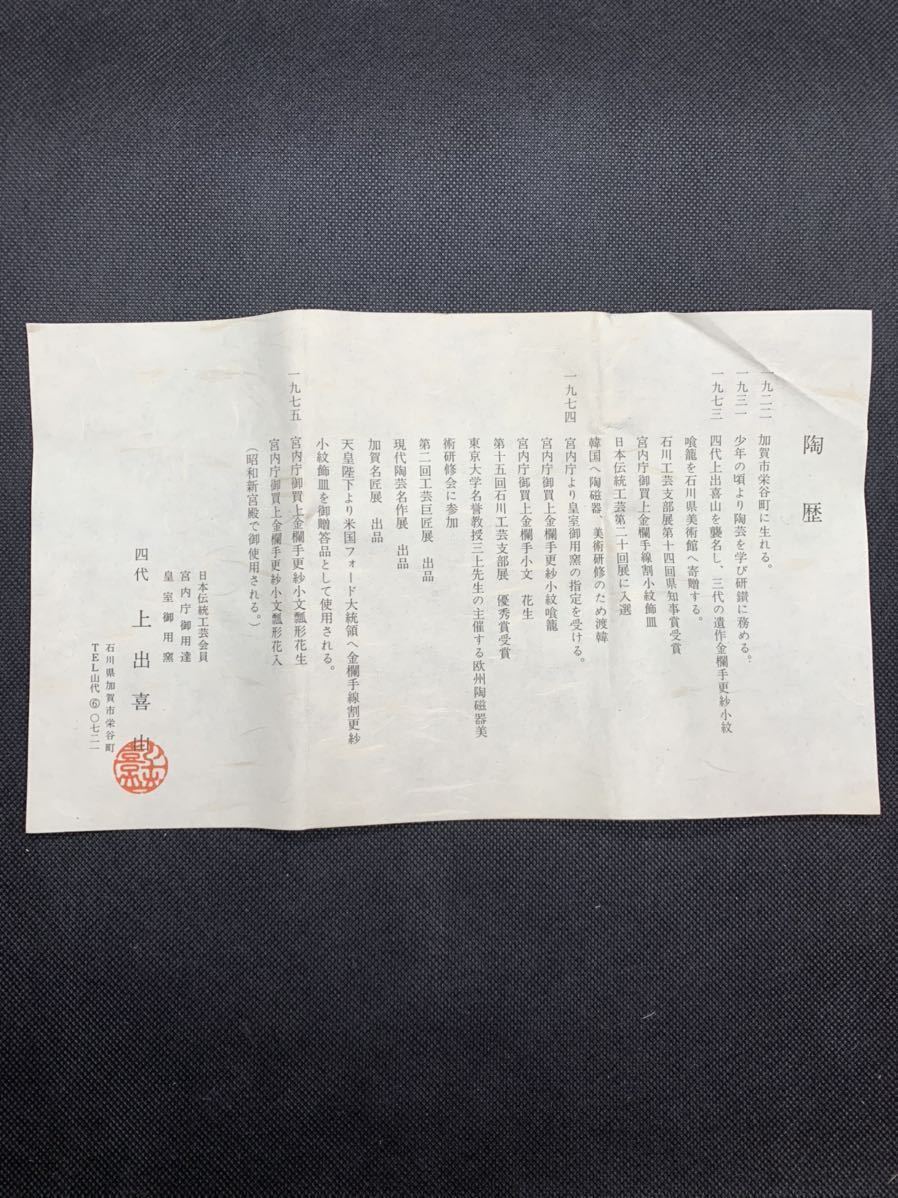 陶歴
一九二二 加賀市栄谷町に生れる。
一九三一 少年の頃より陶芸を学び研鑚に務める。
一九七三 四代上出喜山を襲名し、三代の遺作金欄手更紗小紋
喰籠を石川県美術館へ寄贈する。
石川工芸支部展第十四回県知事賞受賞
宮内庁御買上金欄手線割小紋飾皿
日本伝統工芸第二十回展に入選
韓国へ陶磁器、美術研修のため渡韓
一九七四 宮内庁より皇室御用窯の指定を受ける。
宮内庁御買上金欄手更紗小紋喰籠
宮内庁御買上金欄手小文 花生
第十五回石川工芸支部展 優秀賞受賞
東京大学名誉教授三上先生の主催する欧州陶磁器美
術研修会に参加
第二回工芸巨匠展 出品
現代陶芸名作展 出品
加賀名匠展 出品
天皇陛下より米国フォード大統領へ金欄手線割更紗
小紋飾皿を御贈答品として使用される。
一九七五 宮内庁御買上金欄手更紗小文瓢形花生
宮内庁御買上金欄手更紗小文瓢形花入
(昭和新宮殿で御使用される。)
日本伝統工芸会員
宮内庁御用達
皇室御用窯
四代 上出喜山
石川県加賀市栄谷町
TEL山代⑥〇七二一